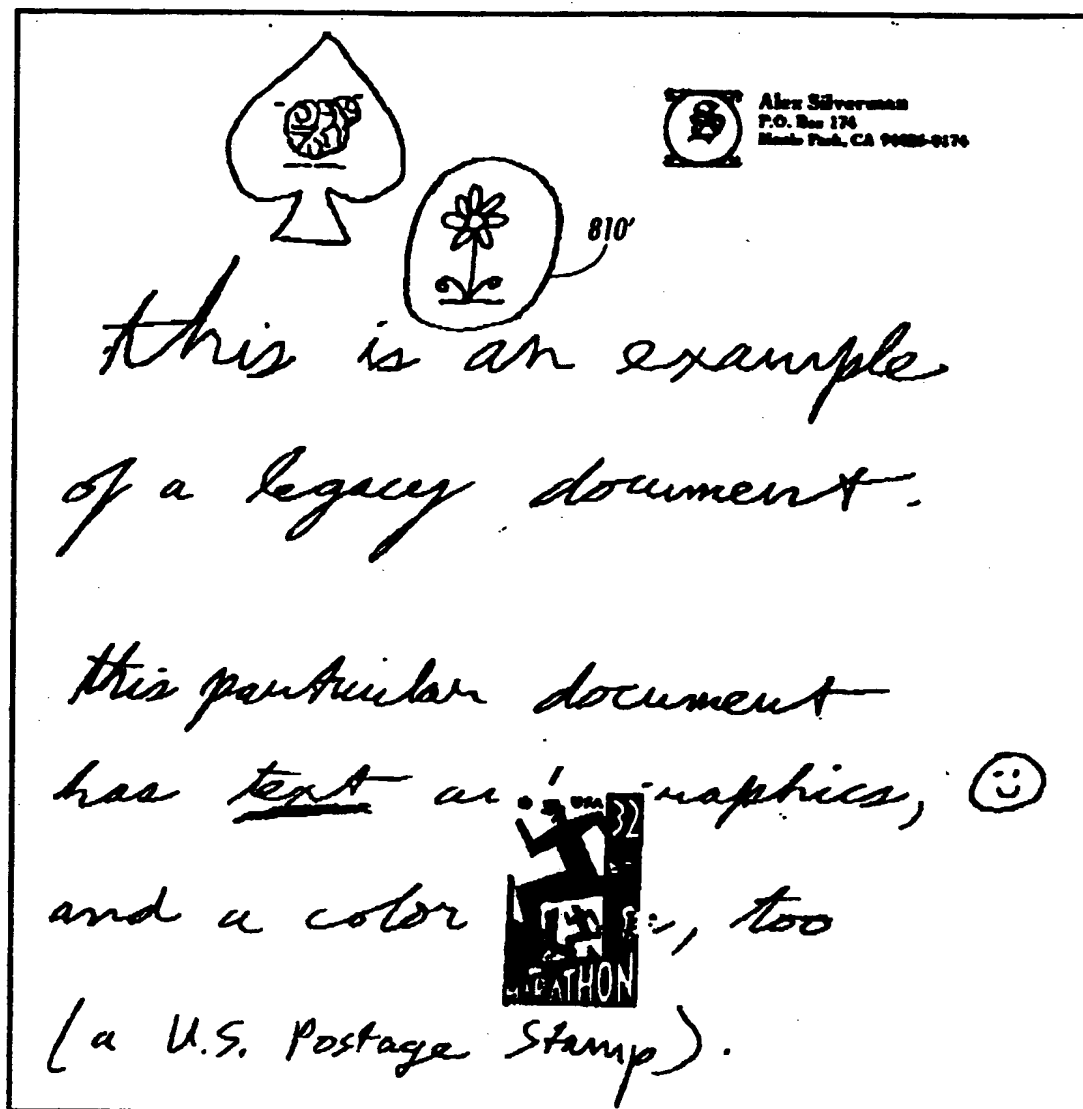 Alex Silverman
P.O. Box 174
Menlo Park, CA 94026-0174
810'
this is an example
of a legacy document.
this particular document
has text an graphics,
USA
32
and a color , too
MARATHON
(a U.S. Postage Stamp).